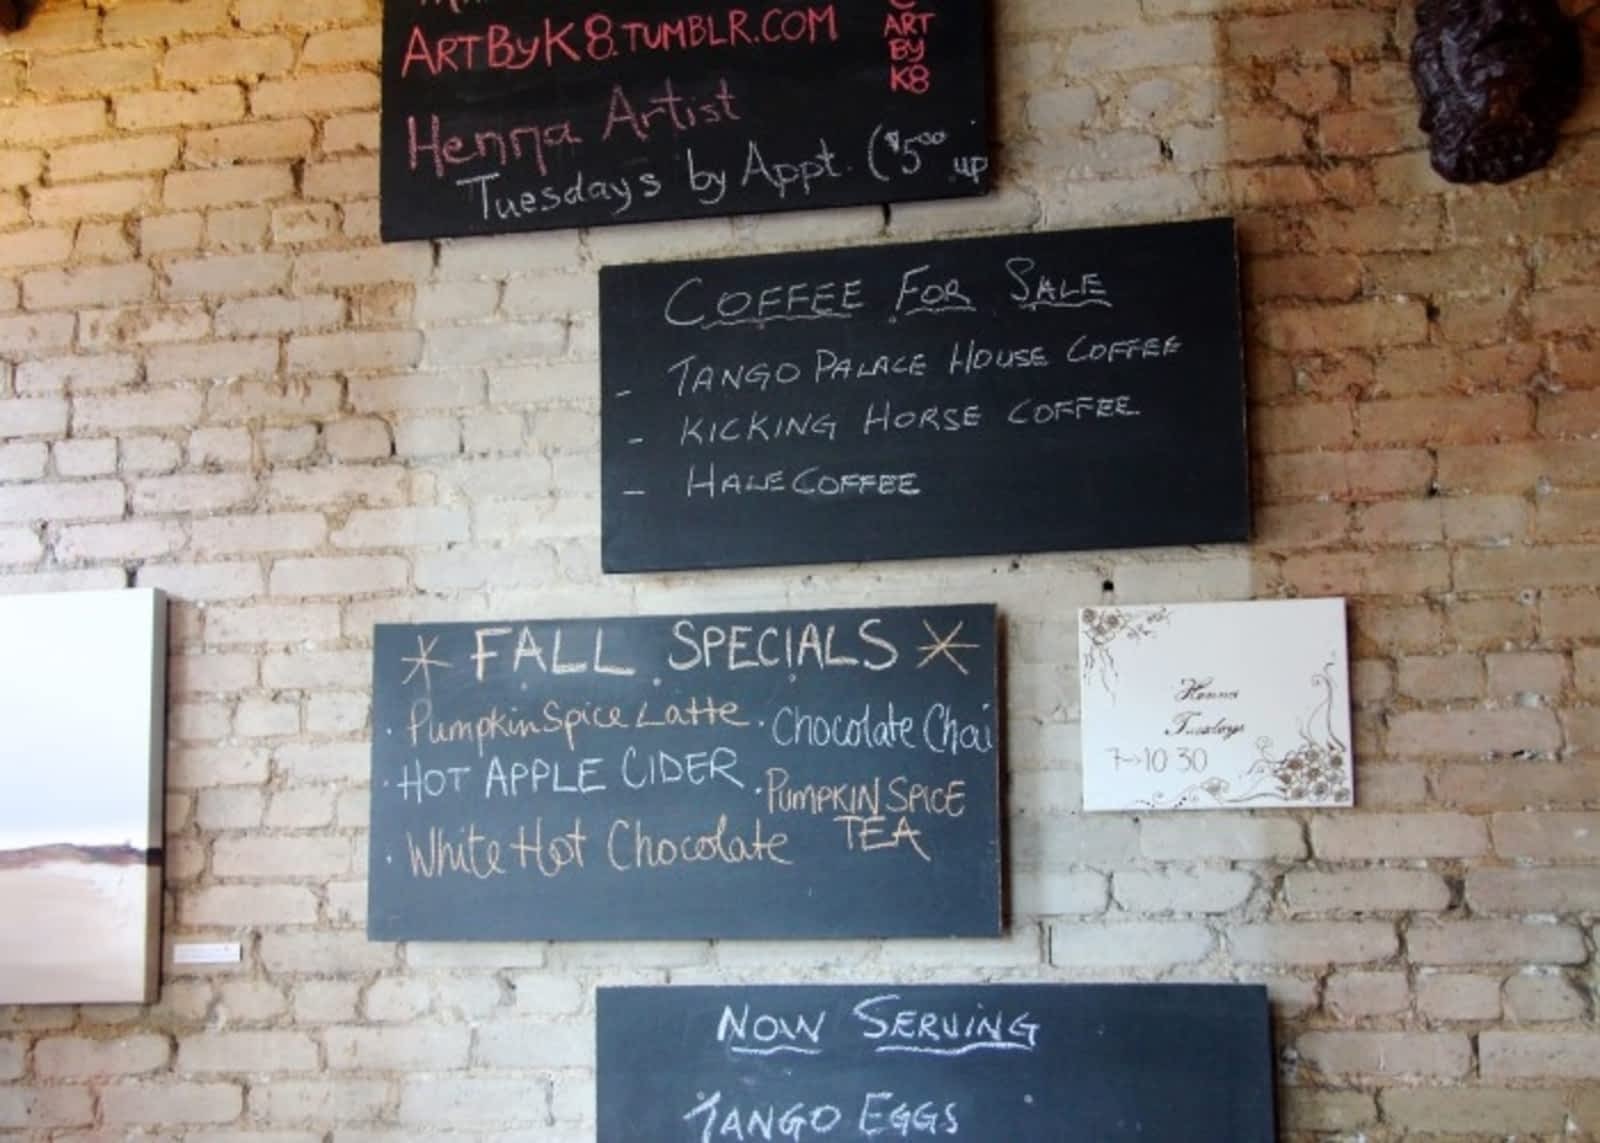 ARTBYK8.TUMBLR.COM
ART
BY
K8
Henna Artist
Tuesdays by Appt. ($5.00 up
COFFEE FOR SALE
- TANGO PALACE HOUSE COFFEE
- KICKING HORSE COFFEE
- HALE COFFEE
* FALL SPECIALS *
· Pumpkin Spice Latte
· HOT APPLE CIDER
· White Hot Chocolate
· Chocolate Chai
· PUMPKIN SPICE
TEA
Henna
Tuesdays
7→10 30
NOW SERVING
TANGO EGGS